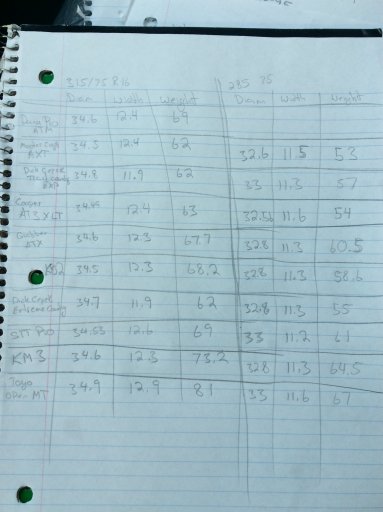 315/75 R16 285 75
Diam Width Weight Diam Width Weight
Dura Pro ATM 34.6 12.4 69
Master Craft AXT 34.5 12.4 62 32.6 11.5 53
Dick Cepek Trail Country EXP 34.8 11.9 62 33 11.3 57
Cooper AT3 XLT 34.49 12.4 63 32.56 11.6 54
Grabber ATX 34.6 12.3 67.7 32.8 11.3 60.5
K02 34.5 12.3 68.2 32.8 11.3 58.6
Dick Cepek Extreme Country 34.7 11.9 62 32.8 11.3 55
STT Pro 34.53 12.6 69 33 11.2 61
KM3 34.6 12.3 73.2 32.8 11.3 64.5
Toyo Open MT 34.9 12.9 81 33 11.6 67